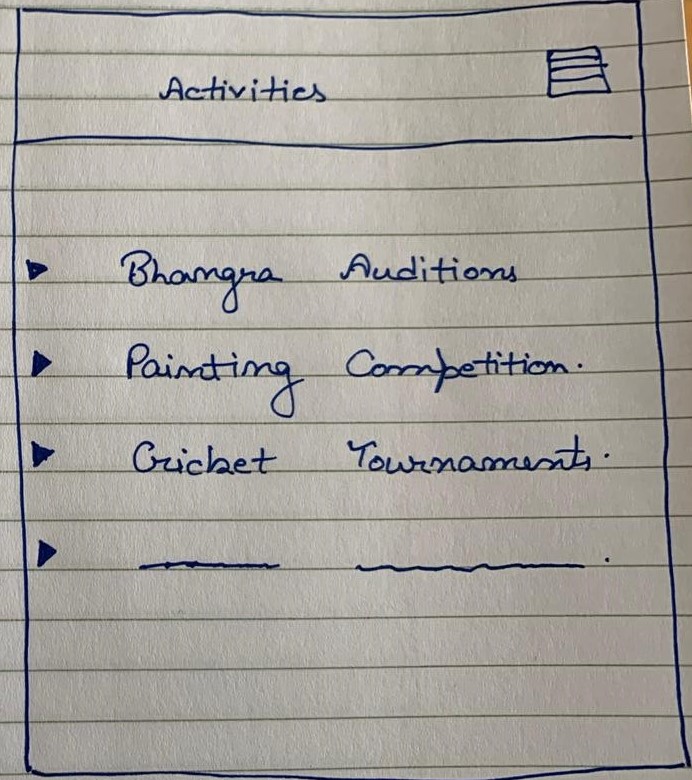 Activities
Bhangra Auditions
Painting Competition.
Cricket Tournaments.